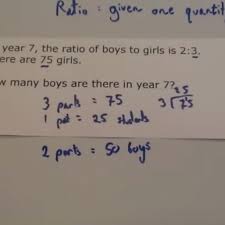 Ratio : given one quantit
year 7, the ratio of boys to girls is 2:3.
ere are 75 girls.
ow many boys are there in year 7?
3 parts = 75
25
3 75
1 part = 25 students
2 parts = 50 boys